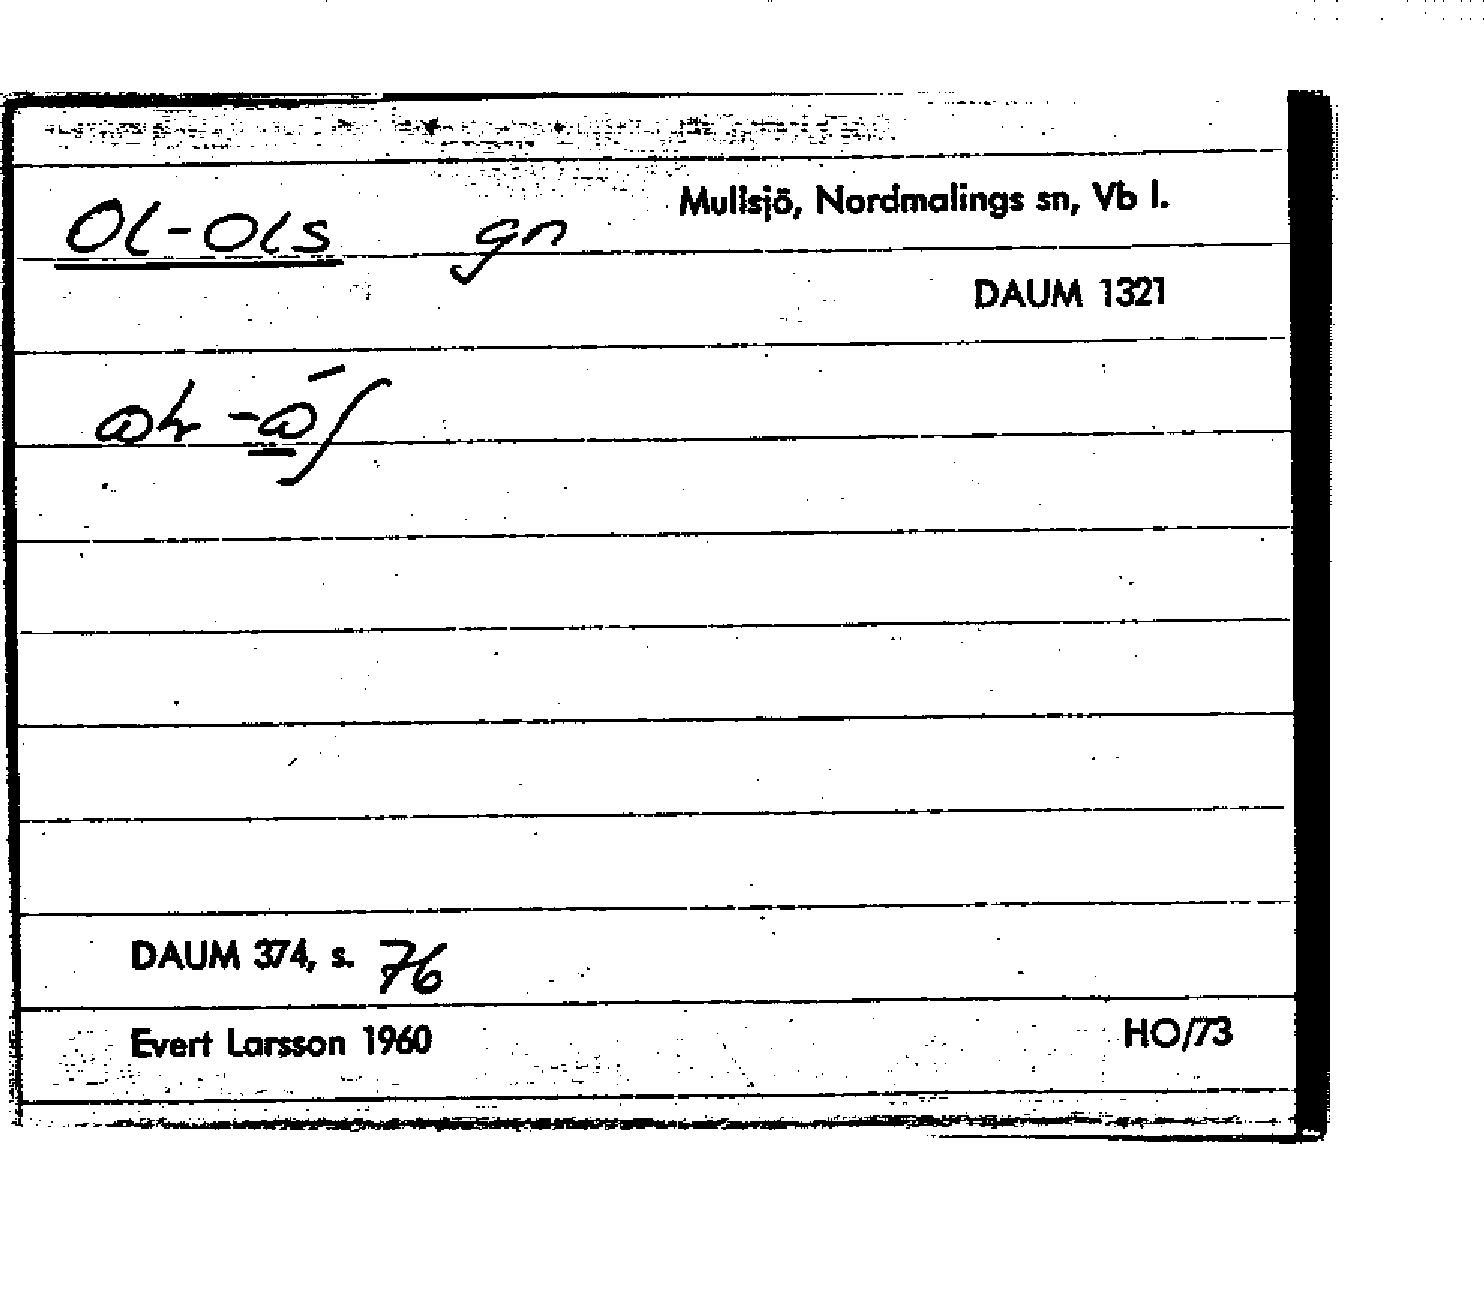 Ol-Ols gn
Mullsjö, Nordmalings sn, Vb l.
DAUM 1321
DAUM 374, s. 76
Evert Larsson 1960
HO/73